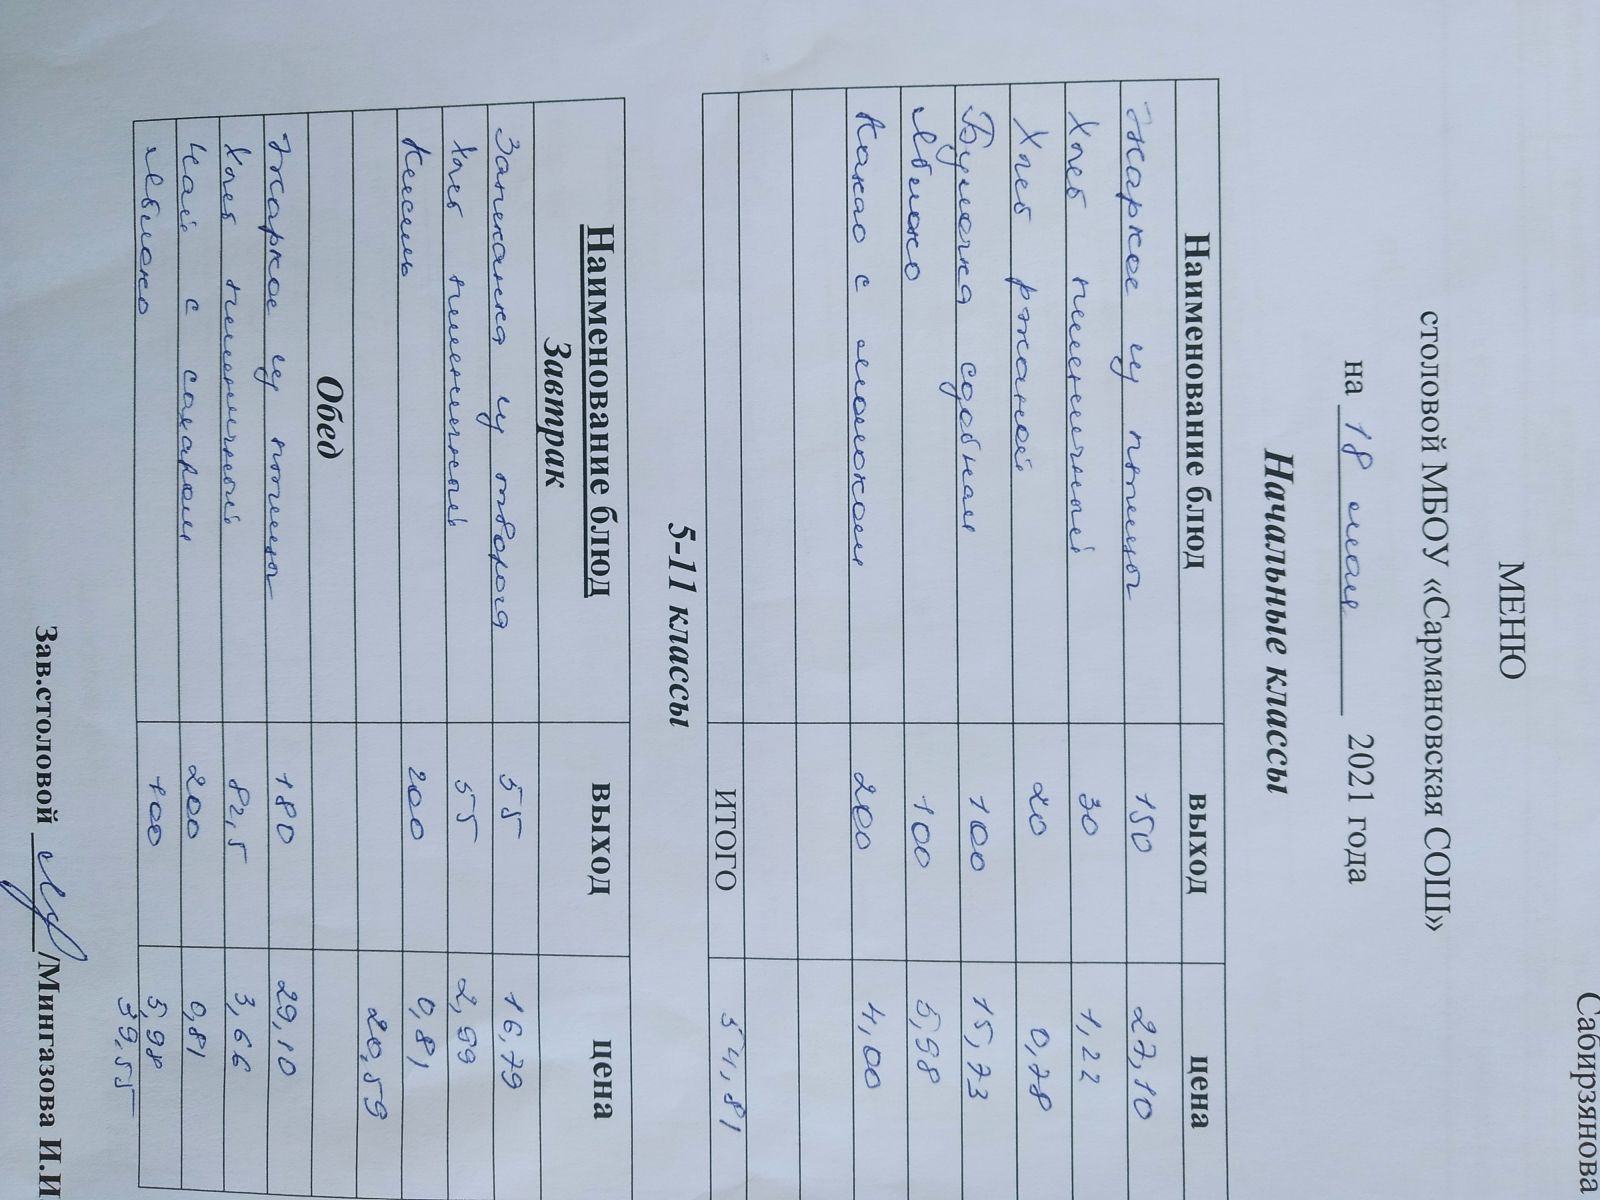 Сабирзянова
МЕНЮ
столовой МБОУ «Сармановская СОШ»
на 18 мая 2021 года
Начальные классы
Наименование блюд выход цена
Жаркое из птицы 150 27,10
Хлеб пшеничный 30 1,22
Хлеб ржаной 20 0,78
Булочка сдобная 100 15,73
Яблоко 100 5,98
Какао с молоком 200 4,00
ИТОГО 54,81
5-11 классы
Наименование блюд выход цена
Завтрак
Запеканка из творога 55 16,79
Хлеб пшеничный 55 2,99
Кисель 200 0,81
20,59
Обед
Жаркое из птицы 180 29,10
Хлеб пшеничный 82,5 3,66
Чай с сахаром 200 0,81
Яблоко 100 5,98
39,55
Зав.столовой /Мингазова И.И